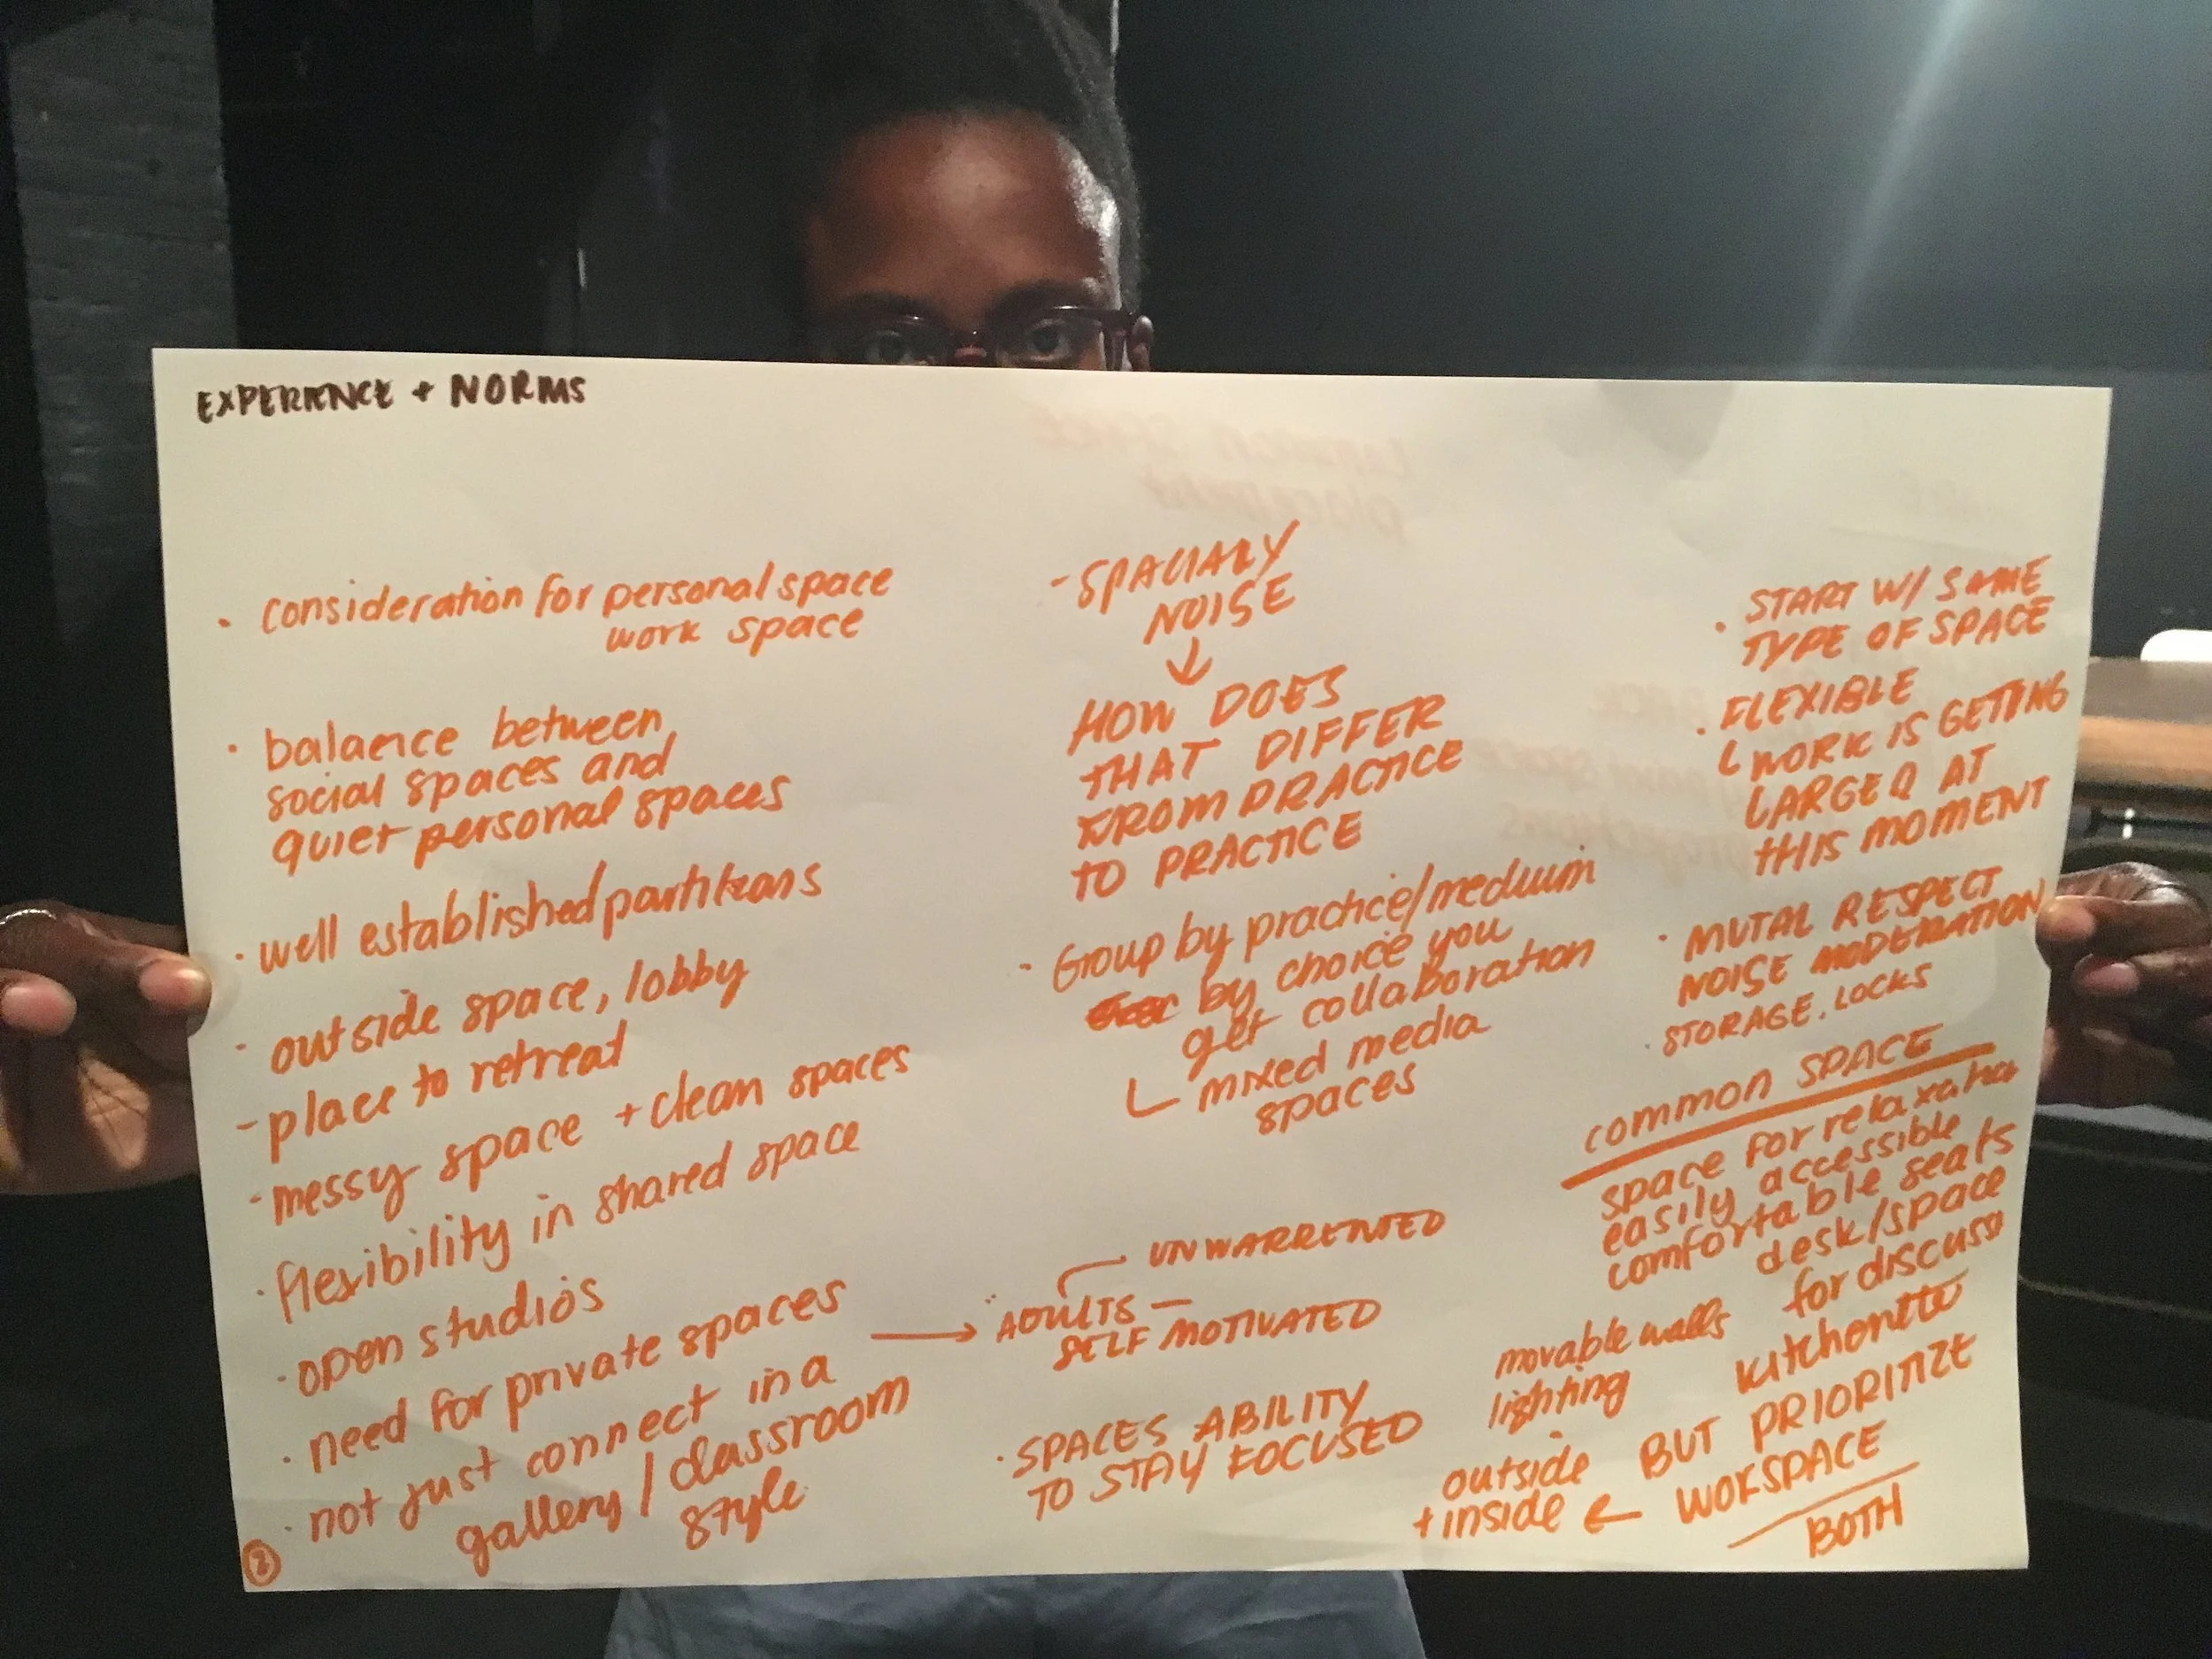 EXPERIENCE + NORMS
· consideration for personal space
work space
· balance between
social spaces and
quiet personal spaces
· well established partitions
- outside space, lobby
- place to retreat
· messy space + clean spaces
· flexibility in shared space
· open studios
· need for private spaces
· not just connect in a
gallery / classroom
style
2
- SPACIALLY
NOISE
↓
HOW DOES
THAT DIFFER
FROM PRACTICE
TO PRACTICE
- Group by practice/medium
by choice you
get collaboration
mixed media
spaces
UNWARRENTED
→ ADULTS —
SELF MOTIVATED
· SPACES ABILITY
TO STAY FOCUSED
· START W/ SAME
TYPE OF SPACE
· FLEXIBLE
WORK IS GETTING
LARGER AT
THIS MOMENT
· MUTAL RESPECT
NOISE MODERATION
· STORAGE, LOCKS
COMMON SPACE
space for relaxation
easily accessible
comfortable seats
desk/space
for discussi
movable walls
lighting
kitchenette
outside
+ inside ←
BUT PRIORITIZE
WORKSPACE
BOTH